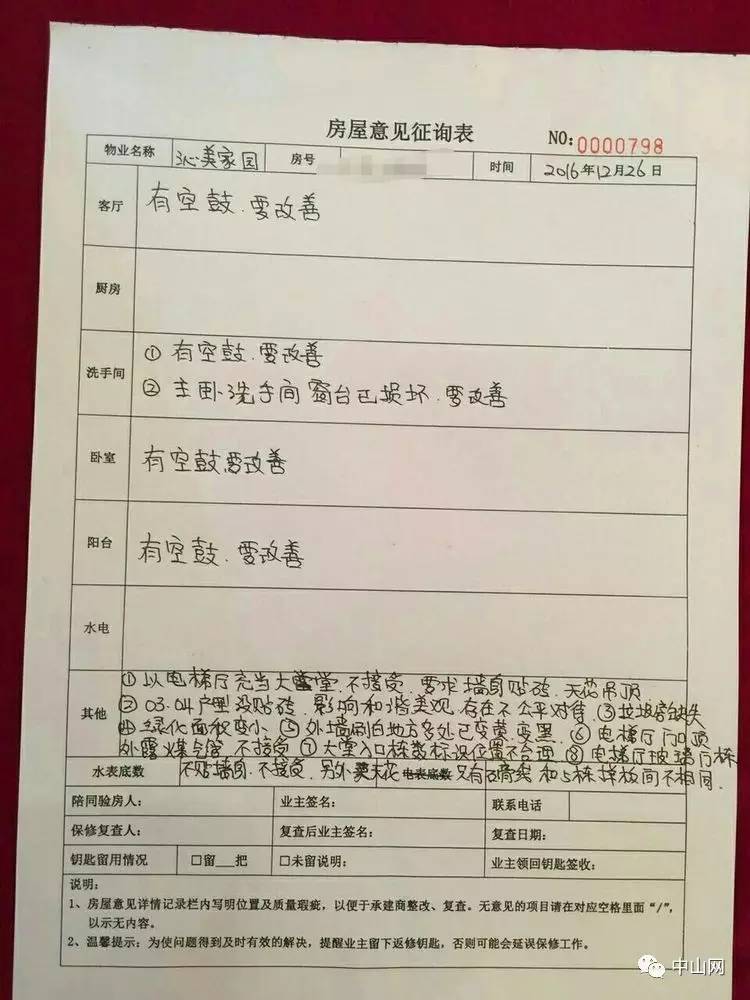 房屋意见征询表
NO:0000798
物业名称 沁美家园 房号 时间 2016年12月26日
客厅 有空鼓.要改善
厨房
洗手间 ① 有空鼓.要改善
② 主卧洗手间窗台已损坏.要改善
卧室 有空鼓.要改善
阳台 有空鼓.要改善
水电
其他 ①以电梯厅充当大堂.不接受.要求墙身贴砖.天花吊顶
② 03.04户型没贴砖.影响和谐美观.存在不公平对待.③垃圾房缺失
④绿化面积变小 ⑤外墙刷白地方多处已变黄.变黑.⑥电梯厅门口顶
外露煤气管.不接受 ⑦大堂入口栋数标识位置不合理.⑧电梯厅玻璃厅栋
水表底数 不贴墙身.不接受.另外天花 电表底数 又有石膏线 和5栋样板间不相同.
陪同验房人: 业主签名: 联系电话
保修复查人: 复查后业主签名: 复查日期:
钥匙留用情况 □留___把 □未留说明: 业主领回钥匙签收:
说明:
1、房屋意见详情记录栏内写明位置及质量瑕疵，以便于承建商整改、复查。无意见的项目请在对应空格里面“/”，
以示无内容。
2、温馨提示：为使问题得到及时有效的解决，提醒业主留下返修钥匙，否则可能会延误保修工作。
中山网